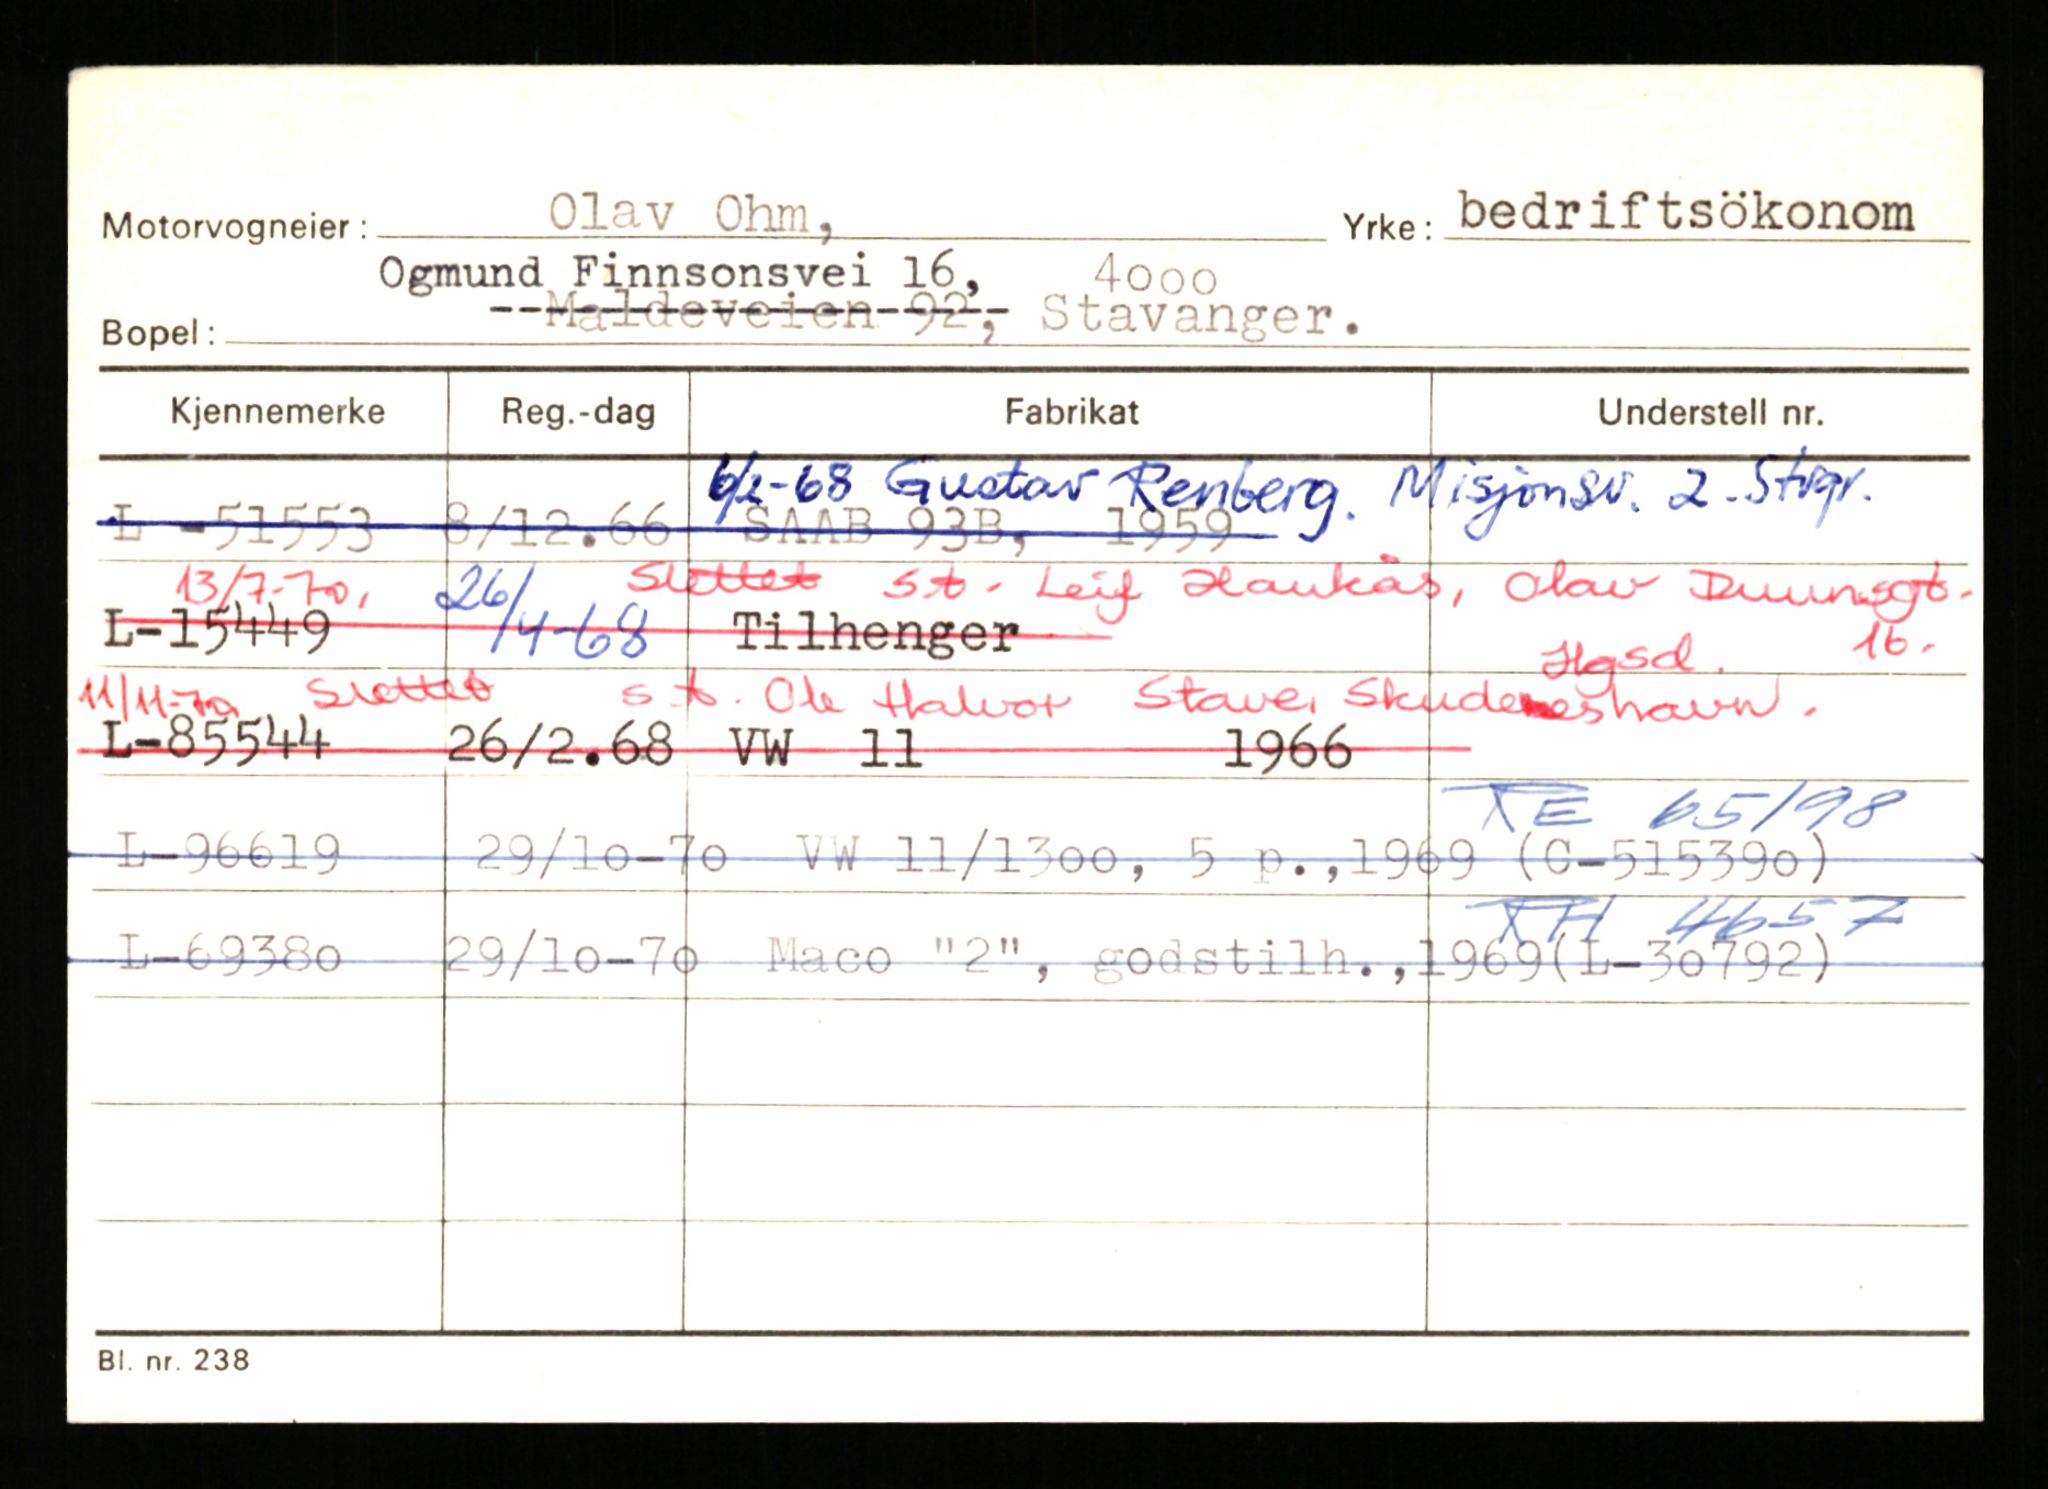 Motorvogneier: Olav Ohm, Yrke: bedriftsökonom
Ogmund Finnsonsvei 16, 4ooo
Bopel: --Maldeveien 92,- Stavanger.
Kjennemerke Reg.-dag Fabrikat Understell nr.
6/2-68 Gustav Renberg. Misjonsv. 2. Stvgr.
L -51553 8/12.66 SAAB 93B, 1959
13/7-70, Slettet s.t. Leif Haukås, Olav Duunsgt.
L-15449 26/4-68 Tilhenger Hgsd. 16.
11/11-70 Slettet s.t. Ole Halvor Stave, Skudeneshavn.
L-85544 26/2.68 VW 11 1966
RE 65198
L-96619 29/1o-7o VW 11/13oo, 5 p.,1969 (C-51539o)
RH 4657
L-6938o 29/1o-7o Maco "2", godstilh.,1969(L-3o792)
Bl. nr. 238